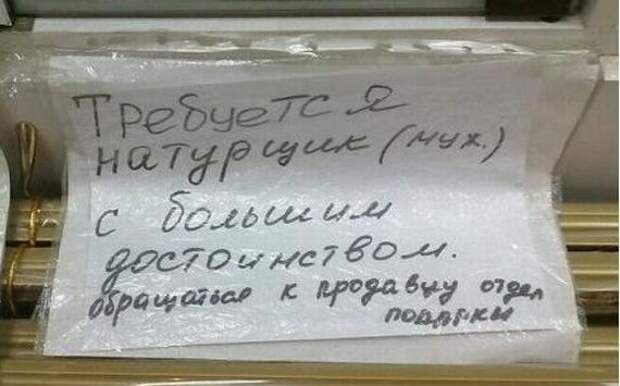 Требуется
натурщик (мух.)
с большим
достоинством.
обращаться к продавцу отдел
подарки